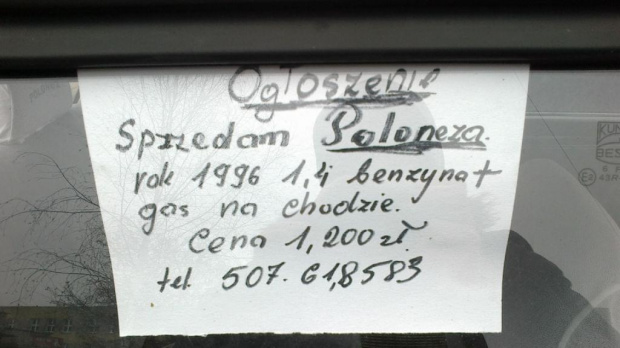 Ogłoszenie
Sprzedam Poloneza.
rok 1996 1,4 benzyna+
gas na chodzie.
Cena 1,200 zł.
tel. 507. 618583
KUM
BES
43R